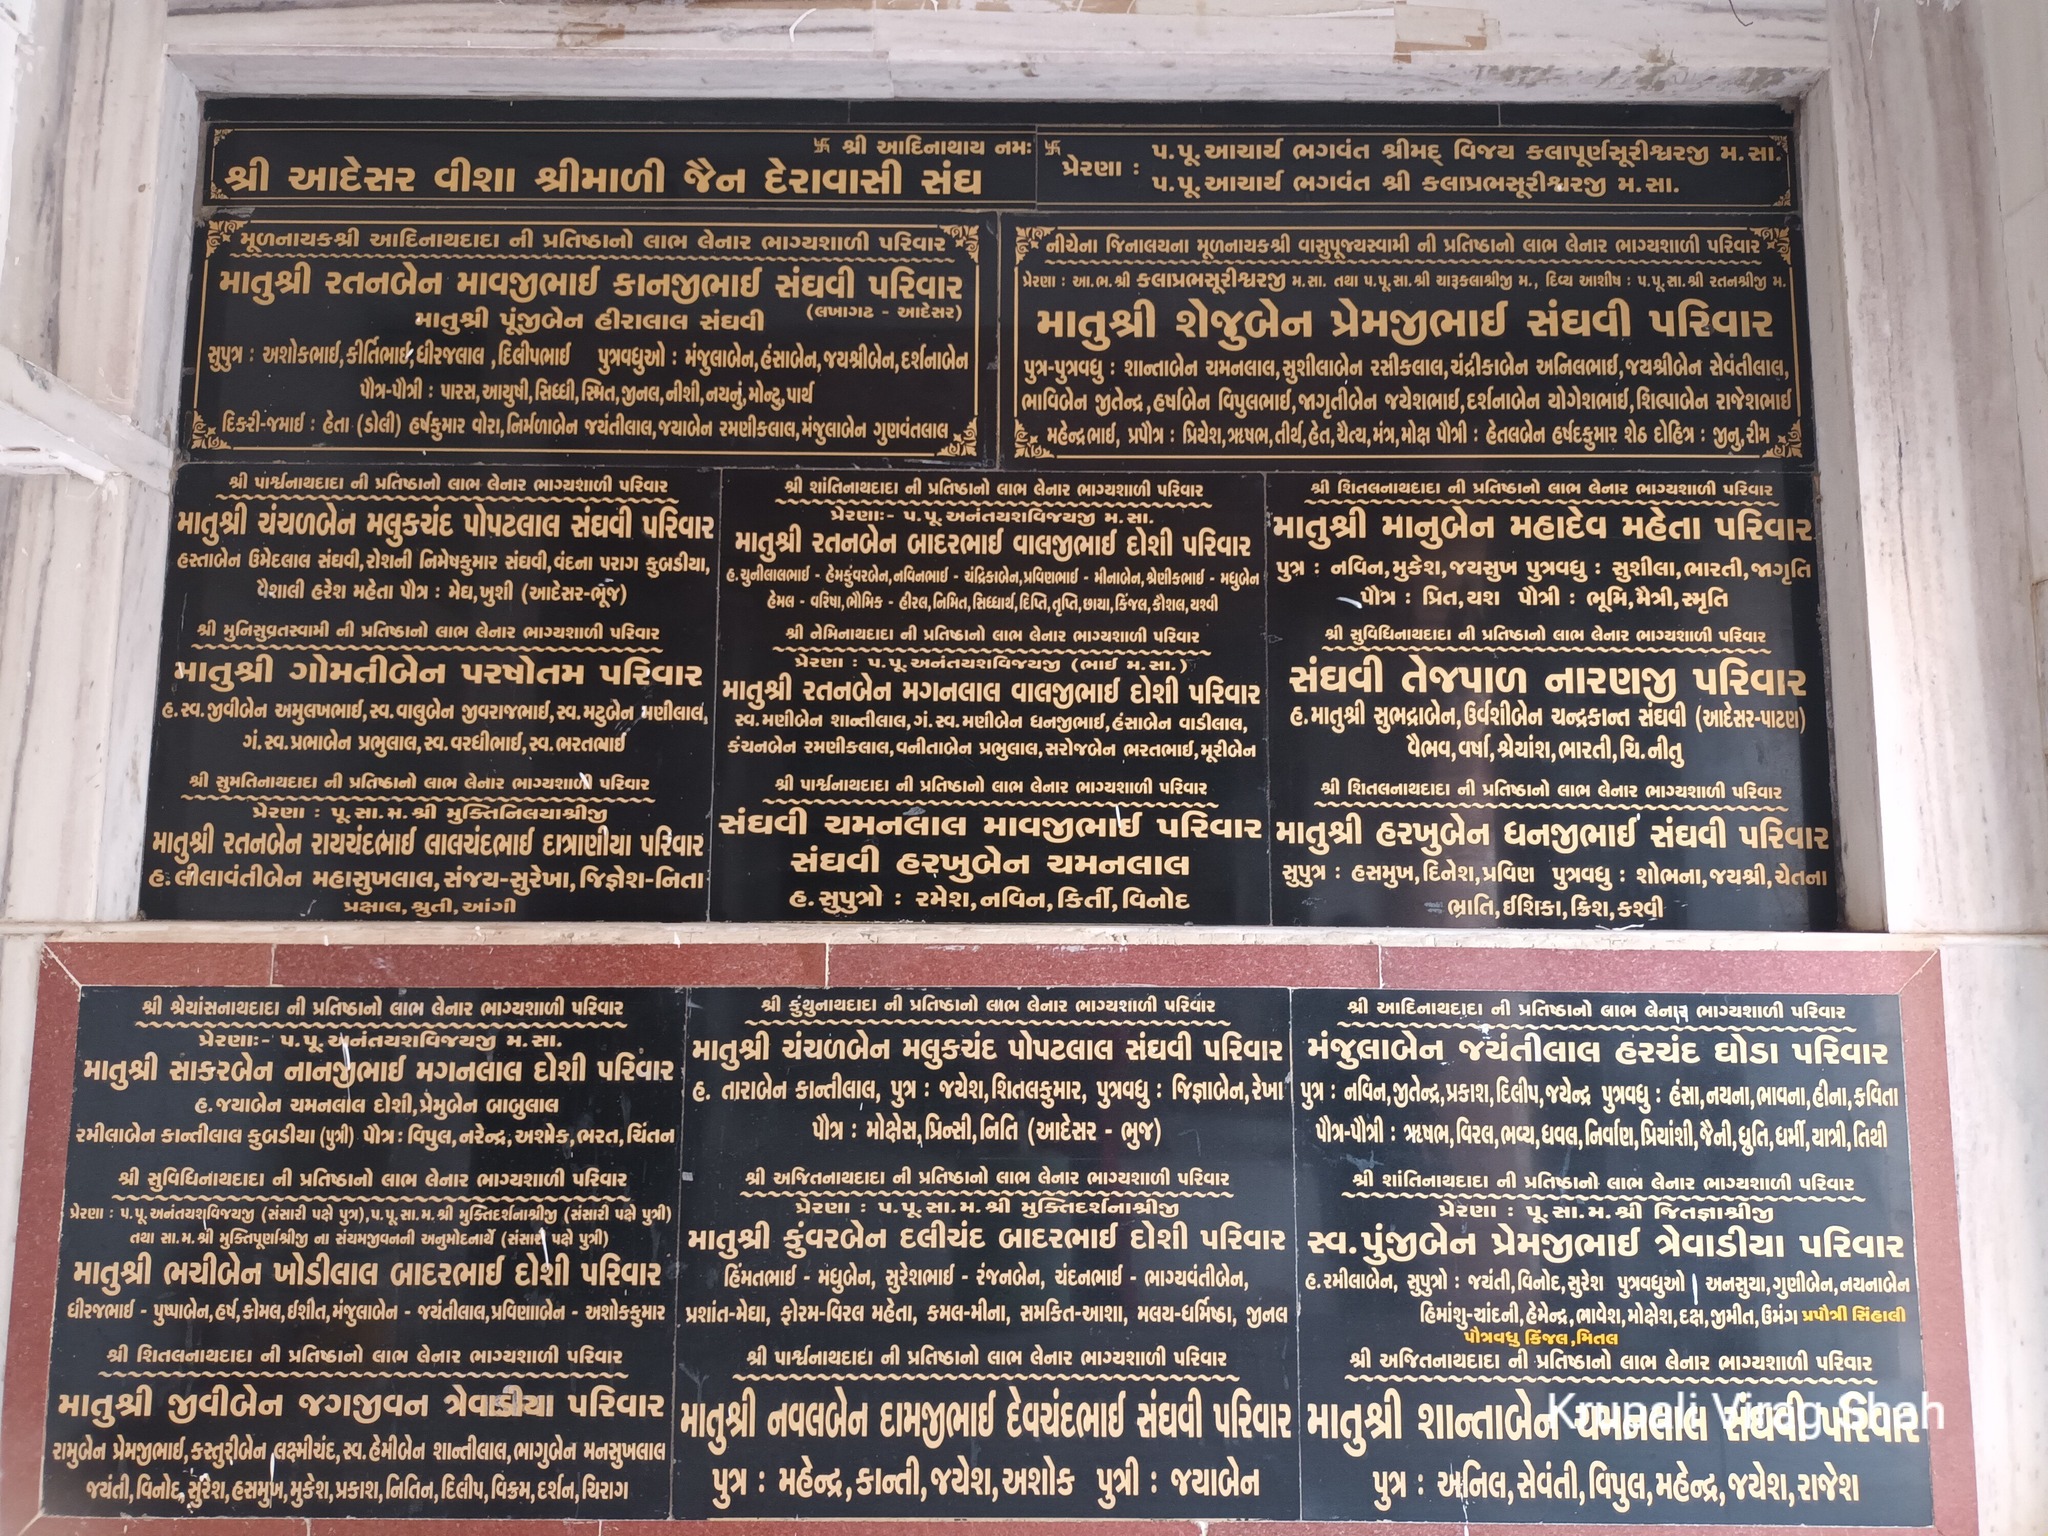 卐 શ્રી આદિનાથાય નમઃ
શ્રી આદેસર વીશા શ્રીમાળી જૈન દેરાવાસી સંઘ
卐 પ્રેરણા : પ.પૂ.આચાર્ય ભગવંત શ્રીમદ્ વિજય કલાપૂર્ણસૂરીશ્વરજી મ.સા.
પ.પૂ.આચાર્ય ભગવંત શ્રી કલાપ્રભસૂરીશ્વરજી મ.સા.
મૂળનાયકશ્રી આદિનાથદાદા ની પ્રતિષ્ઠાનો લાભ લેનાર ભાગ્યશાળી પરિવાર
માતુશ્રી રતનબેન માવજીભાઈ કાનજીભાઈ સંઘવી પરિવાર
(લખાગઢ - આદેસર)
માતુશ્રી પૂંજીબેન હીરાલાલ સંઘવી
સુપુત્ર : અશોકભાઈ,કીર્તિભાઈ,ધીરજલાલ ,દિલીપભાઈ પુત્રવધુઓ : મંજુલાબેન,હંસાબેન,જયશ્રીબેન,દર્શનાબેન
પૌત્ર-પૌત્રી : પારસ,આયુષી,સિધ્ધી,સ્મિત,જીનલ,નીશી,નયનું,મોન્ટુ,પાર્થ
દિકરી-જમાઈ : હેતા (ડોલી) હર્ષકુમાર વોરા,નિર્મળાબેન જયંતીલાલ,જયાબેન રમણીકલાલ,મંજુલાબેન ગુણવંતલાલ
નીચેના જિનાલયના મૂળનાયકશ્રી વાસુપૂજ્યસ્વામી ની પ્રતિષ્ઠાનો લાભ લેનાર ભાગ્યશાળી પરિવાર
પ્રેરણા : આ.ભ.શ્રી કલાપ્રભસૂરીશ્વરજી મ.સા. તથા પ.પૂ.સા.શ્રી ચારૂકલાશ્રીજી મ., દિવ્ય આશીષ : પ.પૂ.સા.શ્રી રતનશ્રીજી મ.
માતુશ્રી શેજુબેન પ્રેમજીભાઈ સંઘવી પરિવાર
પુત્ર-પુત્રવધુ : શાન્તાબેન ચમનલાલ,સુશીલાબેન રસીકલાલ,ચંદ્રીકાબેન અનિલભાઈ,જયશ્રીબેન સેવંતીલાલ,
ભાવિબેન જીતેન્દ્ર,હર્ષાબેન વિપુલભાઈ,જાગૃતીબેન જયેશભાઈ,દર્શનાબેન યોગેશભાઈ,શિલ્પાબેન રાજેશભાઈ
મહેન્દ્રભાઈ, પ્રપૌત્ર : પ્રિયેશ,ઋષભ,તીર્થ,હેત,ચૈત્ય,મંત્ર,મોક્ષ પૌત્રી : હેતલબેન હર્ષદકુમાર શેઠ દોહિત્ર : જીનુ,રીમ
શ્રી પાર્શ્વનાથદાદા ની પ્રતિષ્ઠાનો લાભ લેનાર ભાગ્યશાળી પરિવાર
માતુશ્રી ચંચળબેન મલુકચંદ પોપટલાલ સંઘવી પરિવાર
હસ્તાબેન ઉમેદલાલ સંઘવી,રોશની નિમેષકુમાર સંઘવી,વંદના પરાગ કુબડીયા,
વૈશાલી હરેશ મહેતા પૌત્ર : મેઘ,ખુશી (આદેસર-ભૂંજ)
શ્રી મુનિસુવ્રતસ્વામી ની પ્રતિષ્ઠાનો લાભ લેનાર ભાગ્યશાળી પરિવાર
માતુશ્રી ગોમતીબેન પરષોતમ પરિવાર
હ.સ્વ.જીવીબેન અમુલખભાઈ,સ્વ.વાલુબેન જીવરાજભાઈ,સ્વ.મટુબેન મણીલાલ,
ગં.સ્વ.પ્રભાબેન પ્રભુલાલ,સ્વ.વરધીભાઈ,સ્વ.ભરતભાઈ
શ્રી સુમતિનાથદાદા ની પ્રતિષ્ઠાનો લાભ લેનાર ભાગ્યશાળી પરિવાર
પ્રેરણા : પૂ.સા.મ.શ્રી મુક્તિનિલયાશ્રીજી
માતુશ્રી રતનબેન રાયચંદભાઈ લાલચંદભાઈ દાત્રાણીયા પરિવાર
હ.લીલાવંતીબેન મહાસુખલાલ,સંજય-સુરેખા,જિજ્ઞેશ-નિતા
પ્રક્ષાલ,શ્રુતી,આંગી
શ્રી શાંતિનાથદાદા ની પ્રતિષ્ઠાનો લાભ લેનાર ભાગ્યશાળી પરિવાર
પ્રેરણાઃ- પ.પૂ.અનંતયશવિજયજી મ.સા.
માતુશ્રી રતનબેન બાદરભાઈ વાલજીભાઈ દોશી પરિવાર
હ.ચુનીલાલભાઈ - હેમકુંવરબેન,નવિનભાઈ - ચંદ્રિકાબેન,પ્રવિણભાઈ - મીનાબેન,શ્રેણીકભાઈ - મધુબેન
હેમલ - વરિષા,ભૌમિક - હીરલ,નિમિત,સિધ્ધાર્થ,દિપ્તિ,તૃપ્તિ,છાયા,કિંજલ,કૌશલ,યશ્વી
શ્રી નેમિનાથદાદા ની પ્રતિષ્ઠાનો લાભ લેનાર ભાગ્યશાળી પરિવાર
પ્રેરણા : પ.પૂ.અનંતયશવિજયજી (ભાઈ મ.સા.)
માતુશ્રી રતનબેન મગનલાલ વાલજીભાઈ દોશી પરિવાર
સ્વ.મણીબેન શાન્તીલાલ,ગં.સ્વ.મણીબેન ધનજીભાઈ,હંસાબેન વાડીલાલ,
કંચનબેન રમણીકલાલ,વનીતાબેન પ્રભુલાલ,સરોજબેન ભરતભાઈ,મૂરીબેન
શ્રી પાર્શ્વનાથદાદા ની પ્રતિષ્ઠાનો લાભ લેનાર ભાગ્યશાળી પરિવાર
સંઘવી ચમનલાલ માવજીભાઈ પરિવાર
સંઘવી હરખુબેન ચમનલાલ
હ.સુપુત્રો : રમેશ,નવિન,કિર્તી,વિનોદ
શ્રી શિતલનાથદાદા ની પ્રતિષ્ઠાનો લાભ લેનાર ભાગ્યશાળી પરિવાર
માતુશ્રી માનુબેન મહાદેવ મહેતા પરિવાર
પુત્ર : નવિન,મુકેશ,જયસુખ પુત્રવધુ : સુશીલા,ભારતી,જાગૃતિ
પૌત્ર : પ્રિત,યશ પૌત્રી : ભૂમિ,મૈત્રી,સ્મૃતિ
શ્રી સુવિધિનાથદાદા ની પ્રતિષ્ઠાનો લાભ લેનાર ભાગ્યશાળી પરિવાર
સંઘવી તેજપાળ નારણજી પરિવાર
હ.માતુશ્રી સુભદ્રાબેન,ઉર્વશીબેન ચન્દ્રકાન્ત સંઘવી (આદેસર-પાટણ)
વૈભવ,વર્ષા,શ્રેયાંશ,ભારતી,ચિ.નીતુ
શ્રી શિતલનાથદાદા ની પ્રતિષ્ઠાનો લાભ લેનાર ભાગ્યશાળી પરિવાર
માતુશ્રી હરખુબેન ધનજીભાઈ સંઘવી પરિવાર
સુપુત્ર : હસમુખ,દિનેશ,પ્રવિણ પુત્રવધુ : શોભના,જયશ્રી,ચેતના
ભ્રાતિ,ઈશિકા,ક્રિશ,કશ્વી
શ્રી શ્રેયાંસનાથદાદા ની પ્રતિષ્ઠાનો લાભ લેનાર ભાગ્યશાળી પરિવાર
પ્રેરણાઃ- પ.પૂ.અનંતયશવિજયજી મ.સા.
માતુશ્રી સાકરબેન નાનજીભાઈ મગનલાલ દોશી પરિવાર
હ.જયાબેન ચમનલાલ દોશી,પ્રેમુબેન બાબુલાલ
રમીલાબેન કાન્તીલાલ કુબડીયા (પુત્રી) પૌત્ર: વિપુલ,નરેન્દ્ર,અશોક,ભરત,ચિંતન
શ્રી સુવિધિનાથદાદા ની પ્રતિષ્ઠાનો લાભ લેનાર ભાગ્યશાળી પરિવાર
પ્રેરણા : પ.પૂ.અનંતયશવિજયજી (સંસારી પક્ષે પુત્ર),પ.પૂ.સા.મ.શ્રી મુક્તિદર્શનાશ્રીજી (સંસારી પક્ષે પુત્રી)
તથા સા.મ.શ્રી મુક્તિપૂર્ણાશ્રીજી ના સંયમજીવનની અનુમોદનાર્થે (સંસારી પક્ષે પુત્રી)
માતુશ્રી ભચીબેન ખોડીલાલ બાદરભાઈ દોશી પરિવાર
ધીરજભાઈ - પુષ્પાબેન,હર્ષ,કોમલ,ઈશીત,મંજુલાબેન - જયંતીલાલ,પ્રવિણાબેન - અશોકકુમાર
શ્રી શિતલનાથદાદા ની પ્રતિષ્ઠાનો લાભ લેનાર ભાગ્યશાળી પરિવાર
માતુશ્રી જીવીબેન જગજીવન ત્રેવાડીયા પરિવાર
રામુબેન પ્રેમજીભાઈ,કસ્તુરીબેન લક્ષ્મીચંદ,સ્વ.હેમીબેન શાન્તીલાલ,ભાગુબેન મનસુખલાલ
જયંતી,વિનોદ,સુરેશ,હસમુખ,મુકેશ,પ્રકાશ,નિતિન,દિલીપ,વિક્રમ,દર્શન,ચિરાગ
શ્રી કુંથુનાથદાદા ની પ્રતિષ્ઠાનો લાભ લેનાર ભાગ્યશાળી પરિવાર
માતુશ્રી ચંચળબેન મલુકચંદ પોપટલાલ સંઘવી પરિવાર
હ. તારાબેન કાન્તીલાલ, પુત્ર : જયેશ,શિતલકુમાર, પુત્રવધુ : જિજ્ઞાબેન,રેખા
પૌત્ર : મોક્ષેસ,પ્રિન્સી,નિતિ (આદેસર - ભુજ)
શ્રી અજિતનાથદાદા ની પ્રતિષ્ઠાનો લાભ લેનાર ભાગ્યશાળી પરિવાર
પ્રેરણા : પ.પૂ.સા.મ.શ્રી મુક્તિદર્શનાશ્રીજી
માતુશ્રી કુંવરબેન દલીચંદ બાદરભાઈ દોશી પરિવાર
હિંમતભાઈ - મધુબેન, સુરેશભાઈ - રંજનબેન, ચંદનભાઈ - ભાગ્યવંતીબેન,
પ્રશાંત-મેઘા, ફોરમ-વિરલ મહેતા, કમલ-મીના, સમકિત-આશા, મલય-ધર્મિષ્ઠા, જીનલ
શ્રી પાર્શ્વનાથદાદા ની પ્રતિષ્ઠાનો લાભ લેનાર ભાગ્યશાળી પરિવાર
માતુશ્રી નવલબેન દામજીભાઈ દેવચંદભાઈ સંઘવી પરિવાર
પુત્ર : મહેન્દ્ર,કાન્તી,જયેશ,અશોક પુત્રી : જયાબેન
શ્રી આદિનાથદાદા ની પ્રતિષ્ઠાનો લાભ લેનાર ભાગ્યશાળી પરિવાર
મંજુલાબેન જયંતીલાલ હરચંદ ઘોડા પરિવાર
પુત્ર : નવિન,જીતેન્દ્ર,પ્રકાશ,દિલીપ,જયેન્દ્ર પુત્રવધુ : હંસા,નયના,ભાવના,હીના,કવિતા
પૌત્ર-પૌત્રી : ઋષભ,વિરલ,ભવ્ય,ધવલ,નિર્વાણ,પ્રિયાંશી,જૈની,ધ્રુતિ,ધર્મી,યાત્રી,તિથી
શ્રી શાંતિનાથદાદા ની પ્રતિષ્ઠાનો લાભ લેનાર ભાગ્યશાળી પરિવાર
પ્રેરણા : પૂ.સા.મ.શ્રી જિતજ્ઞાશ્રીજી
સ્વ.પુંજીબેન પ્રેમજીભાઈ ત્રેવાડીયા પરિવાર
હ.રમીલાબેન, સુપુત્રો : જયંતી,વિનોદ,સુરેશ પુત્રવધુઓ : અનસુયા,ગુણીબેન,નયનાબેન
હિમાંશુ-ચાંદની,હેમેન્દ્ર,ભાવેશ,મોક્ષેશ,દક્ષ,જીમીત,ઉમંગ પ્રપૌત્રી સિંહાલી
પૌત્રવધુ કિંજલ,મિતલ
શ્રી અજિતનાથદાદા ની પ્રતિષ્ઠાનો લાભ લેનાર ભાગ્યશાળી પરિવાર
માતુશ્રી શાન્તાબેન ચમનલાલ સંઘવી પરિવાર
પુત્ર : અનિલ,સેવંતી,વિપુલ,મહેન્દ્ર,જયેશ,રાજેશ
Krupali Virag Shah